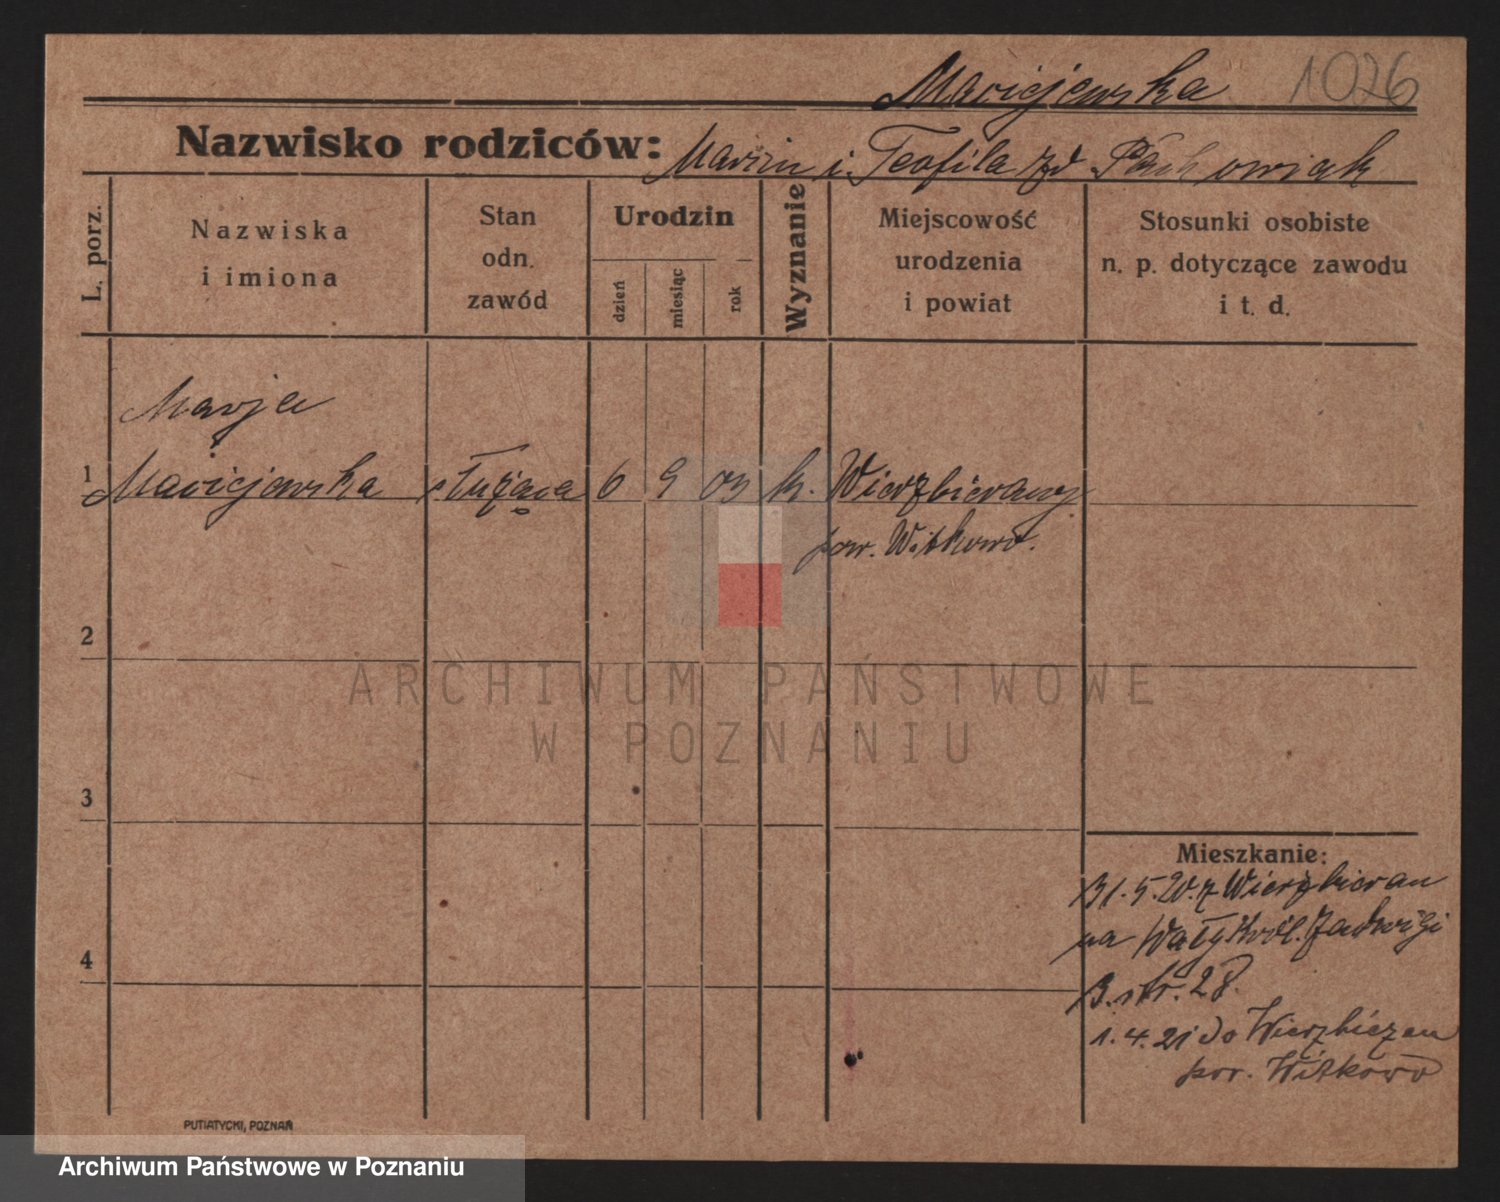 Maciejewska 1026
Nazwisko rodziców: Marcin i Teofila zd
L. porz.
Nazwiska
i imiona
Stan
odn.
zawód
Urodzin
dzień
miesiąc
rok
Wyznanie
Miejscowość
urodzenia
i powiat
Stosunki osobiste
n. p. dotyczące zawodu
i t. d.
Marja
1 Maciejewska służąca 6 9 03 k. Wierzbiczany
pow. Witkowo.
2
3
4
Mieszkanie:
31.5.20. z Wierzbiczan
na Wały Król. Jadwigi
28.
1.4.21 do Wierzbiczan
pow. Witkowo
PUTIATYCKI, POZNAŃ
ARCHIWUM PAŃSTWOWE
W POZNANIU
Archiwum Państwowe w Poznaniu